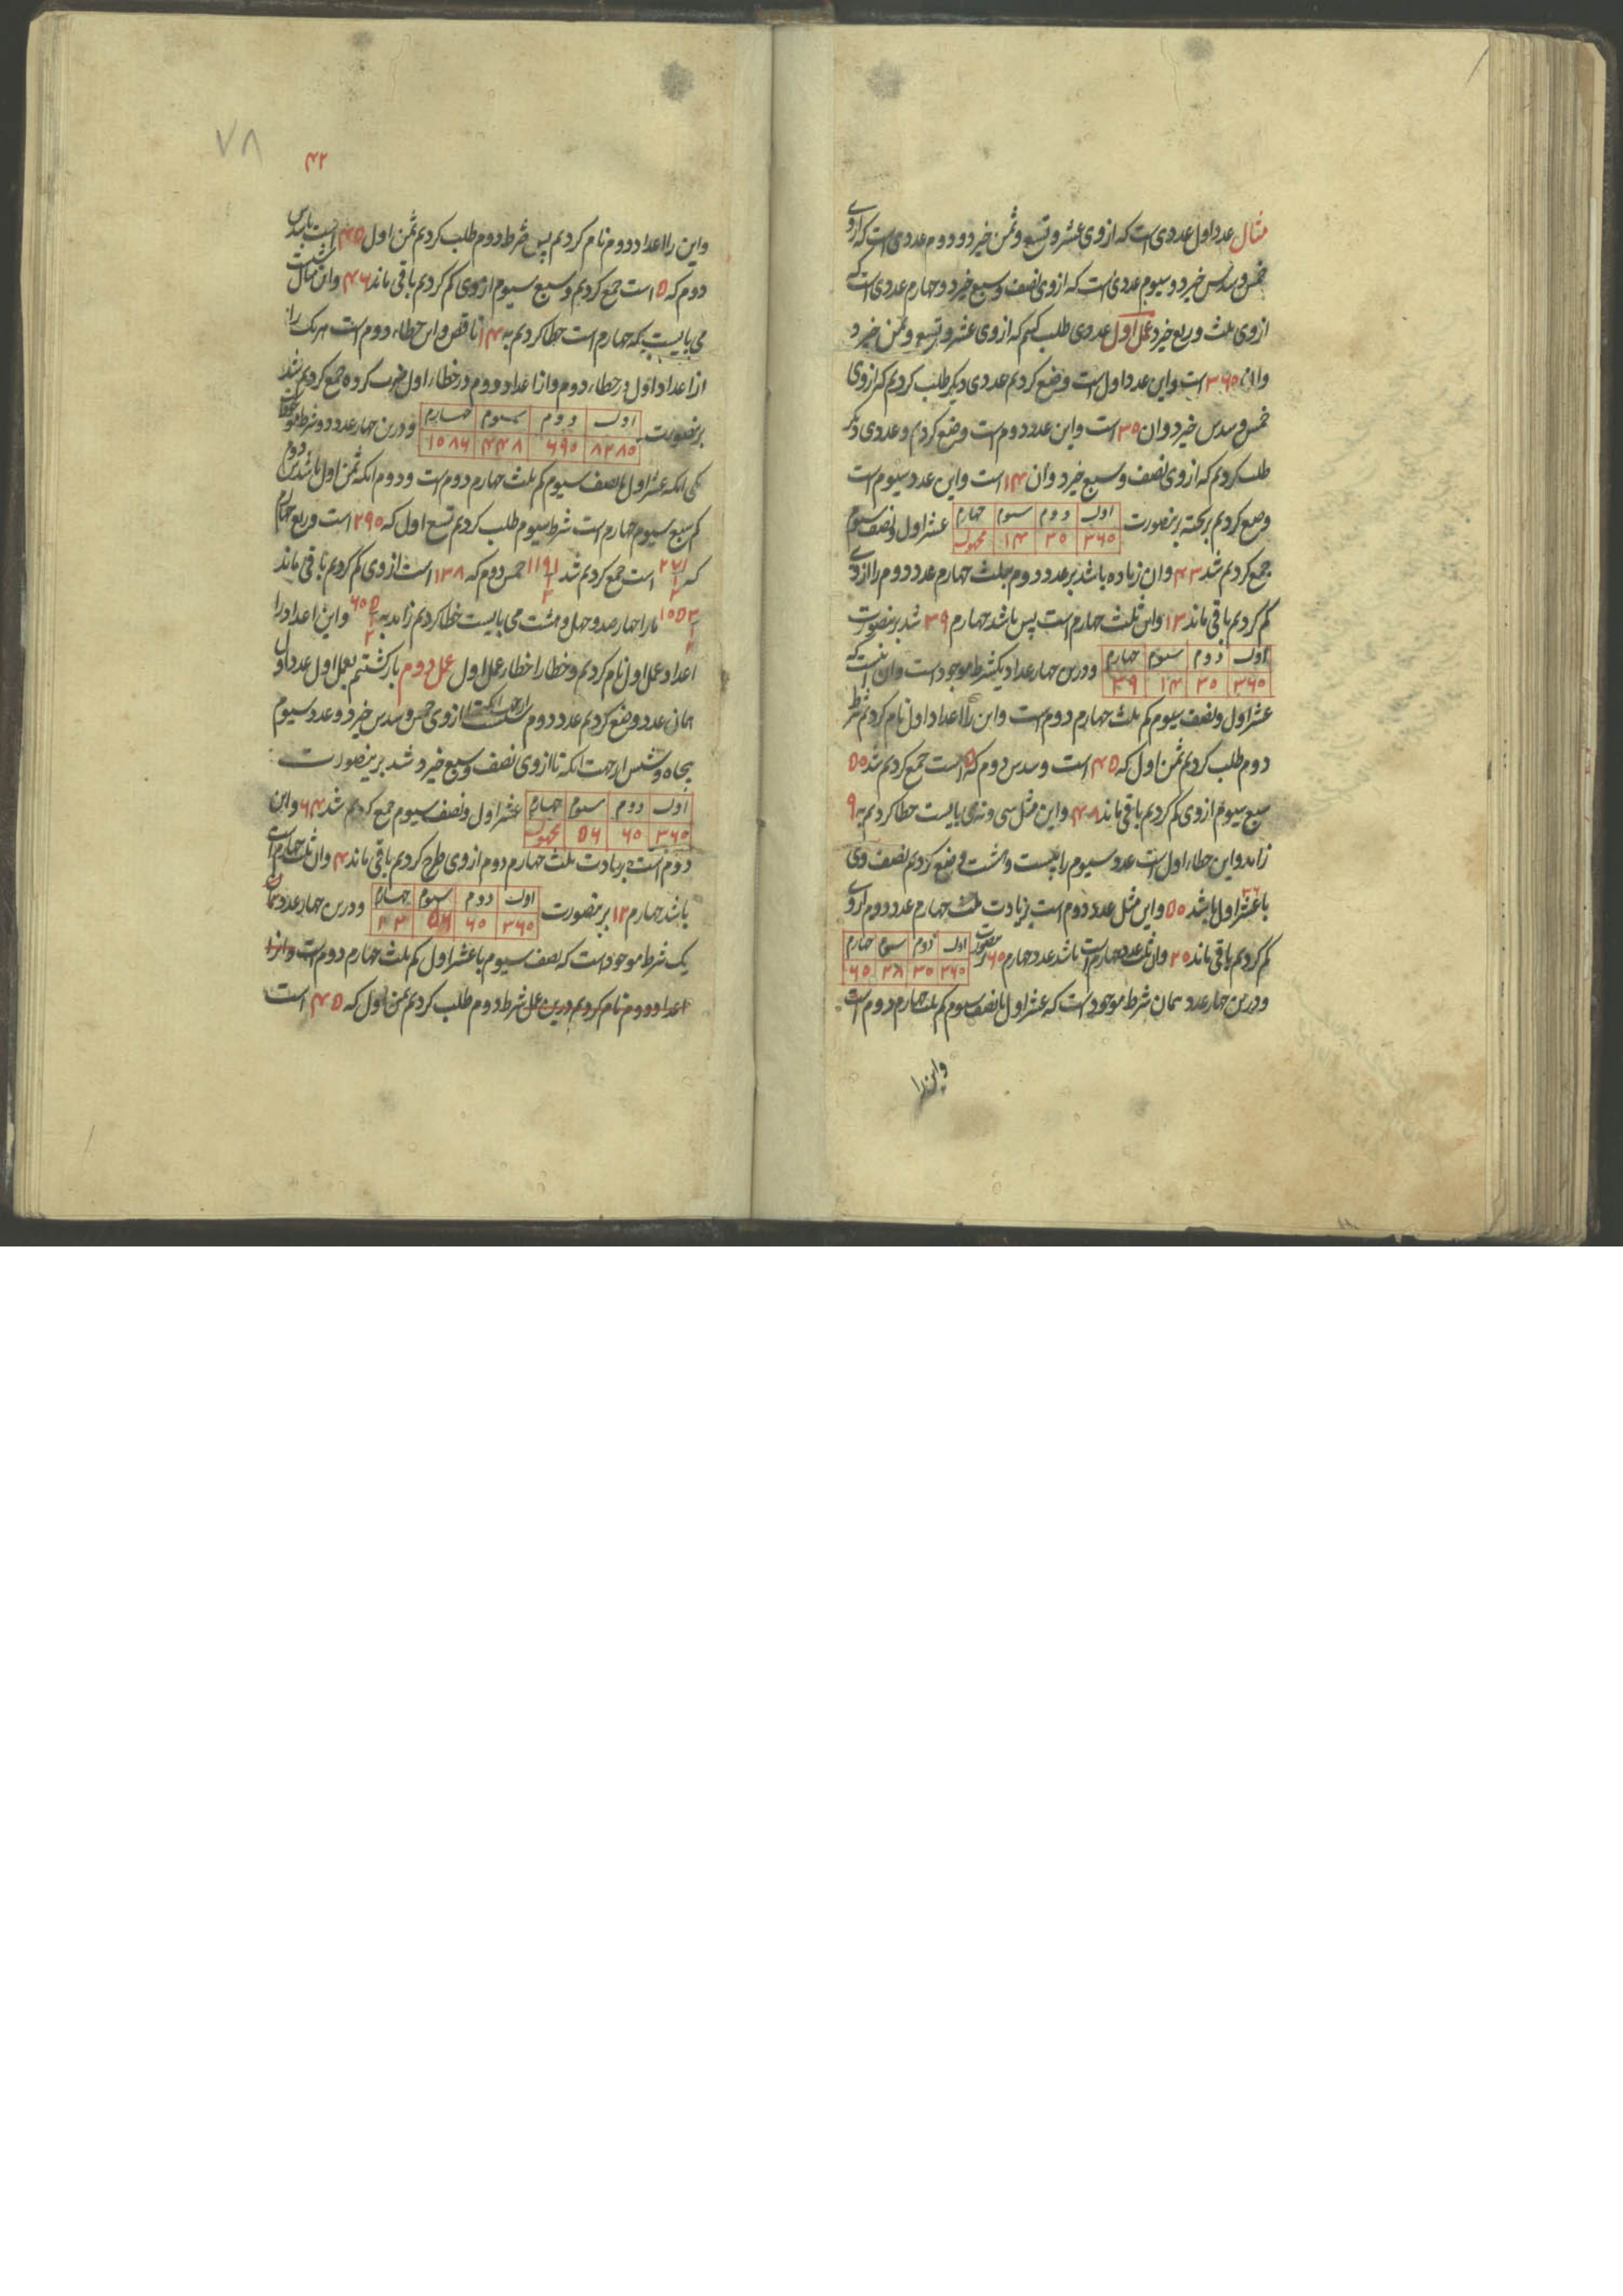 مثال عدد اول عددی است که از وی عشر و تسع و ثمن خیزد و دوم عددی است که از وی
خمس و سدس خیزد و سیوم عددی است که از وی نصف و سبع خیزد و چهارم عددی است که
از وی ثلث و ربع خیزد عمل اول عددی طلب کنیم که از وی عشر و تسع و ثمن خیزد
و آن ۳۶۰ است و این عدد اول است وضع کردیم عددی دیگر طلب کردیم که از وی
خمس و سدس خیزد و آن ۳۰ است و این عدد دوم است وضع کردیم و عددی دیگر
طلب کردیم که از وی نصف و سبع خیزد و آن ۱۴ است و این عدد سیوم است
وضع کردیم بر تخته برینصورت
اول دوم سیوم چهارم
۳۶۰ ۳۰ ۱۴ مجهول
عشر اول و نصف سیوم
جمع کردیم شد ۴۳ و آن زیاده باشد بر عدد دوم بثلث چهارم عدد دوم را از وی
کم کردیم باقی ماند ۱۳ و این ثلث چهارم است پس باشد چهارم ۳۹ شد برینصورت
اول دوم سیوم چهارم
۳۶۰ ۳۰ ۱۴ ۳۹
و درین چهار عداد یکشرط موجود است و آن آنست که
عشر اول و نصف سیوم کم ثلث چهارم دوم است و این را اعداد اول نام کردیم شرط
دوم طلب کردیم ثمن اول که ۴۵ است و سدس دوم که ۵ است جمع کردیم شد ۵۰
سبع سیوم از وی کم کردیم باقی ماند ۴۸ و این مثل سی و نه می بایست خطا کردیم به ۹
زاید و این خطاء اول است عدد سیوم را بیست و هشت وضع کردیم نصف وی
با عشر اول ۳۶ باشد ۵۰ و این مثل عدد دوم است بزیادت ثلث چهارم عدد دوم از وی
کم کردیم باقی ماند ۲۰ و آن ثلث عدد چهارم است باشد عدد چهارم ۶۰ برینصورت
اول دوم سیوم چهارم
۳۶۰ ۳۰ ۲۸ ۶۰
و درین چهار عدد همان شرط موجود است که عشر اول با نصف سیوم کم ثلث چهارم دوم است
و اینرا
۷۸
۴۲
و این را اعداد دوم نام کردیم پس شرط دوم طلب کردیم ثمن اول ۴۵ است با سدس
دوم که ۵ است جمع کردیم و سبع سیوم از وی کم کردیم باقی ماند ۴۶ و این مثال شصت
می بایست که چهارم است خطا کردیم به ۱۴ ناقص و این خطاء دوم است هر یک را
از اعداد اول در خطاء دوم و از اعداد دوم در خطاء اول ضرب کرده جمع کردیم شد
برینصورت
اول دوم سیوم چهارم
۸۲۸۰ ۶۹۰ ۴۴۸ ۱۰۸۶
و درین چهار عدد دو شرط موجود
یکی آنکه عشر اول با نصف سیوم کم ثلث چهارم دوم است و دوم آنکه ثمن اول با سدس دوم
کم سبع سیوم چهارم است شرط سیوم طلب کردیم تسع اول که ۲۹۰ است و ربع چهارم
که ۲۷۱ ۱ ۲ است جمع کردیم شد ۱۱۹۱ ۱ ۲ خمس دوم که ۱۳۸ است از وی کم کردیم باقی ماند
۱۰۵۳ ۱ ۲ ما را چهار صد و چهل و هشت می بایست خطا کردیم زاید به ۶۰۵ ۱ ۲ و این اعداد را
اعداد عمل اول نام کردیم و خطا را خطاء عمل اول عمل دوم باز گشتیم بعمل اول عدد اول
همان عدد وضع کردیم عدد دوم شصت از جهت آنکه از وی خمس و سدس خیزد و عدد سیوم
پنجاه و شش از جهت آنکه تا از وی نصف و سبع خیزد شد برینصورت
اول دوم سیوم چهارم
۳۶۰ ۶۰ ۵۶ مجهول
عشر اول و نصف سیوم جمع کردیم شد ۶۴ و این
دوم است بزیادت ثلث چهارم دوم از وی طرح کردیم باقی ماند ۴ و آن ثلث چهارم است
باشد چهارم ۱۲ برینصورت
اول دوم سیوم چهارم
۳۶۰ ۶۰ ۵۶
و درین چهار عدد همان
یک شرط موجود است که نصف سیوم با عشر اول کم ثلث چهارم دوم است و آنرا
اعداد دوم نام کردیم درین عمل شرط دوم طلب کردیم ثمن اول که ۴۵ است